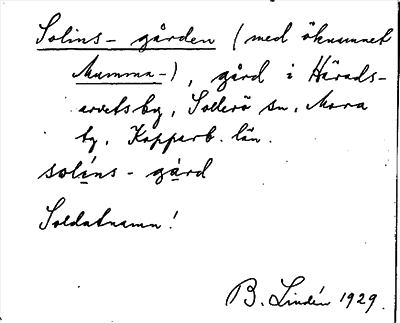 Solins-gården (med öknamnet
Mamma-), gård i Härads-
arvetsby, Sollerö sn, Mora
tg, Kopparb. län.
solíns-gård
Soldatnamn!
B. Lindén 1929.